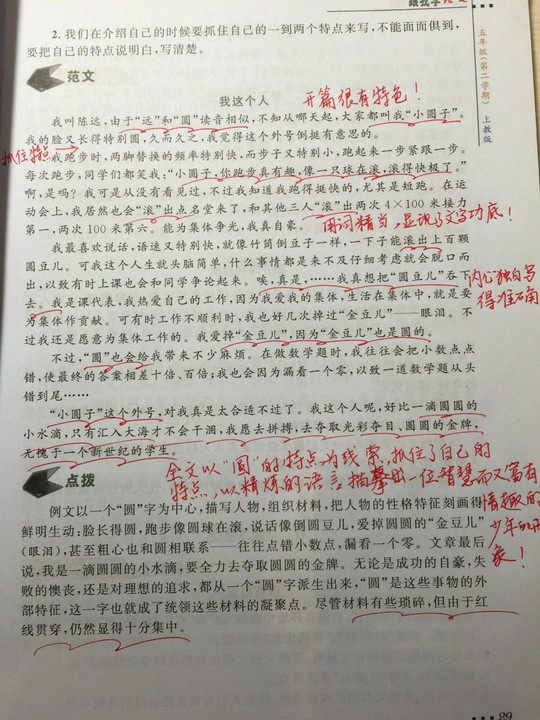 跟我学
五年级(第二学期)
上教版
2.我们在介绍自己的时候要抓住自己的一到两个特点来写,不能面面俱到,
要把自己的特点说明白,写清楚。
范文
我这个人
开篇很有特色!
我叫陈远,由于“远”和“圆”读音相似,不知从哪天起,大家都叫我“小圆子”。
我的脸又长得特别圆,久而久之,我觉得这个外号倒挺有意思的。
抓住特点
我跑步时,两脚替换的频率特别快,而步子又特别小,跑起来一步紧跟一步。
每次跑步,同学们都笑我:“小圆子,你跑步真有趣,像一只球在滚,滚得快极了。”
啊,是吗?我可是从没有看见过,不过我知道我跑得挺快的,尤其是短跑。在运
动会上,我居然也会“滚”出点名堂来了,和其他三人“滚”出两次4×100米接力
第一,两次100米第六。能为集体争光,我真自豪。
用词精当,显现了文字功底!
我最喜欢说话,语速又特别快,就像竹筒倒豆子一样,一下子能滚出上百颗
圆豆儿。可我这个人生就头脑简单,什么事情都是来不及仔细考虑就会脱口而
出,以致有时上课也会和同学争论起来。唉,真是,……我真想把“圆豆儿”吞下
去。我是课代表,我热爱自己的工作,因为我爱我的集体,生活在集体中,就是要
为集体作贡献。可有时工作不顺利时,我也好几次掉过“金豆儿”——眼泪。不
过我还是愿意为集体工作的。我爱掉“金豆儿”,因为“金豆儿”也是圆的。
内心独白写
得准确
不过,“圆”也会给我带来不少麻烦。在做数学题时,我往往会把小数点点
错,使最终的答案相差十倍、百倍;我也会因为漏看一个零,以致一道数学题从头
错到尾……
“小圆子”这个外号,对我真是太合适不过了。我这个人呢,好比一滴圆圆的
小水滴,只有汇入大海才不会干涸,我愿去拼搏,去夺取光彩夺目、圆圆的金牌,
无愧于一个新世纪的学生。
全文以“圆”的特点为线索,抓住了自己的
特点,以精炼的语言,描摹出一位智慧而又富有
情趣的
少年的形
象!
点拨
例文以一个“圆”字为中心,描写人物,组织材料,把人物的性格特征刻画得
鲜明生动:脸长得圆,跑步像圆球在滚,说话像倒圆豆儿,爱掉圆圆的“金豆儿”
(眼泪),甚至粗心也和圆相联系——往往点错小数点,漏看一个零。文章最后
说,我是一滴圆圆的小水滴,要全力去夺取圆圆的金牌。无论是成功的自豪,失
败的懊丧,还是对理想的追求,都从一个“圆”字派生出来,“圆”是这些事物的外
部特征,这一字也就成了统领这些材料的凝聚点。尽管材料有些琐碎,但由于红
线贯穿,仍然显得十分集中。
29